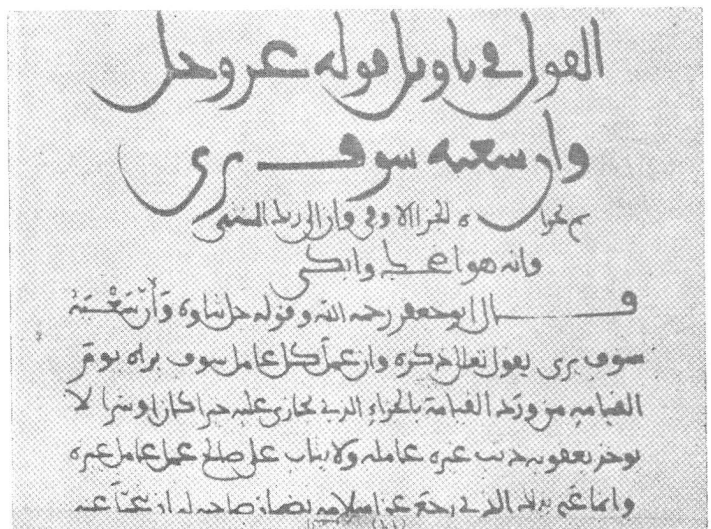 القول في تاويل قوله عز وجل
وان سعيه سوف يرى
ثم يجزاه الجزا الاوفى وان الى ربك المنتهى
وانه هو اضحك وابكى
قال ابو جعفر رحمه الله وقوله جل ثناوه وَأَنَّ سَعْيَهُ
سوف يرى يقول تعالى ذكره وان عمل كل عامل سوف يراه يوم
القيامه من ورد القيامة بالجزاء الذي يجازى عليه خيرا كان او شرا لا
يوخذ بعقوبه ذنب غيره عامله ولا يثاب على صالح عمل عامل غيره
وانما عني بذلك الذي رجع عن اسلامه بضمان صاحبه له ان عنه